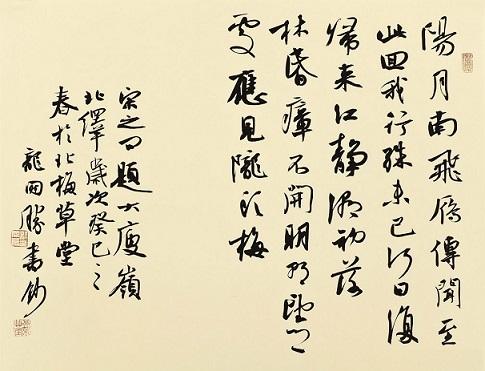 陽月南飛雁傳聞至
此回我行殊未已何日復
歸来江静潮初落
林昏瘴不開明朝望鄉
處應見隴頭梅
宋之问題大庾嶺
北驛歲次癸巳之
春於北梅草堂
龍開勝書鈔